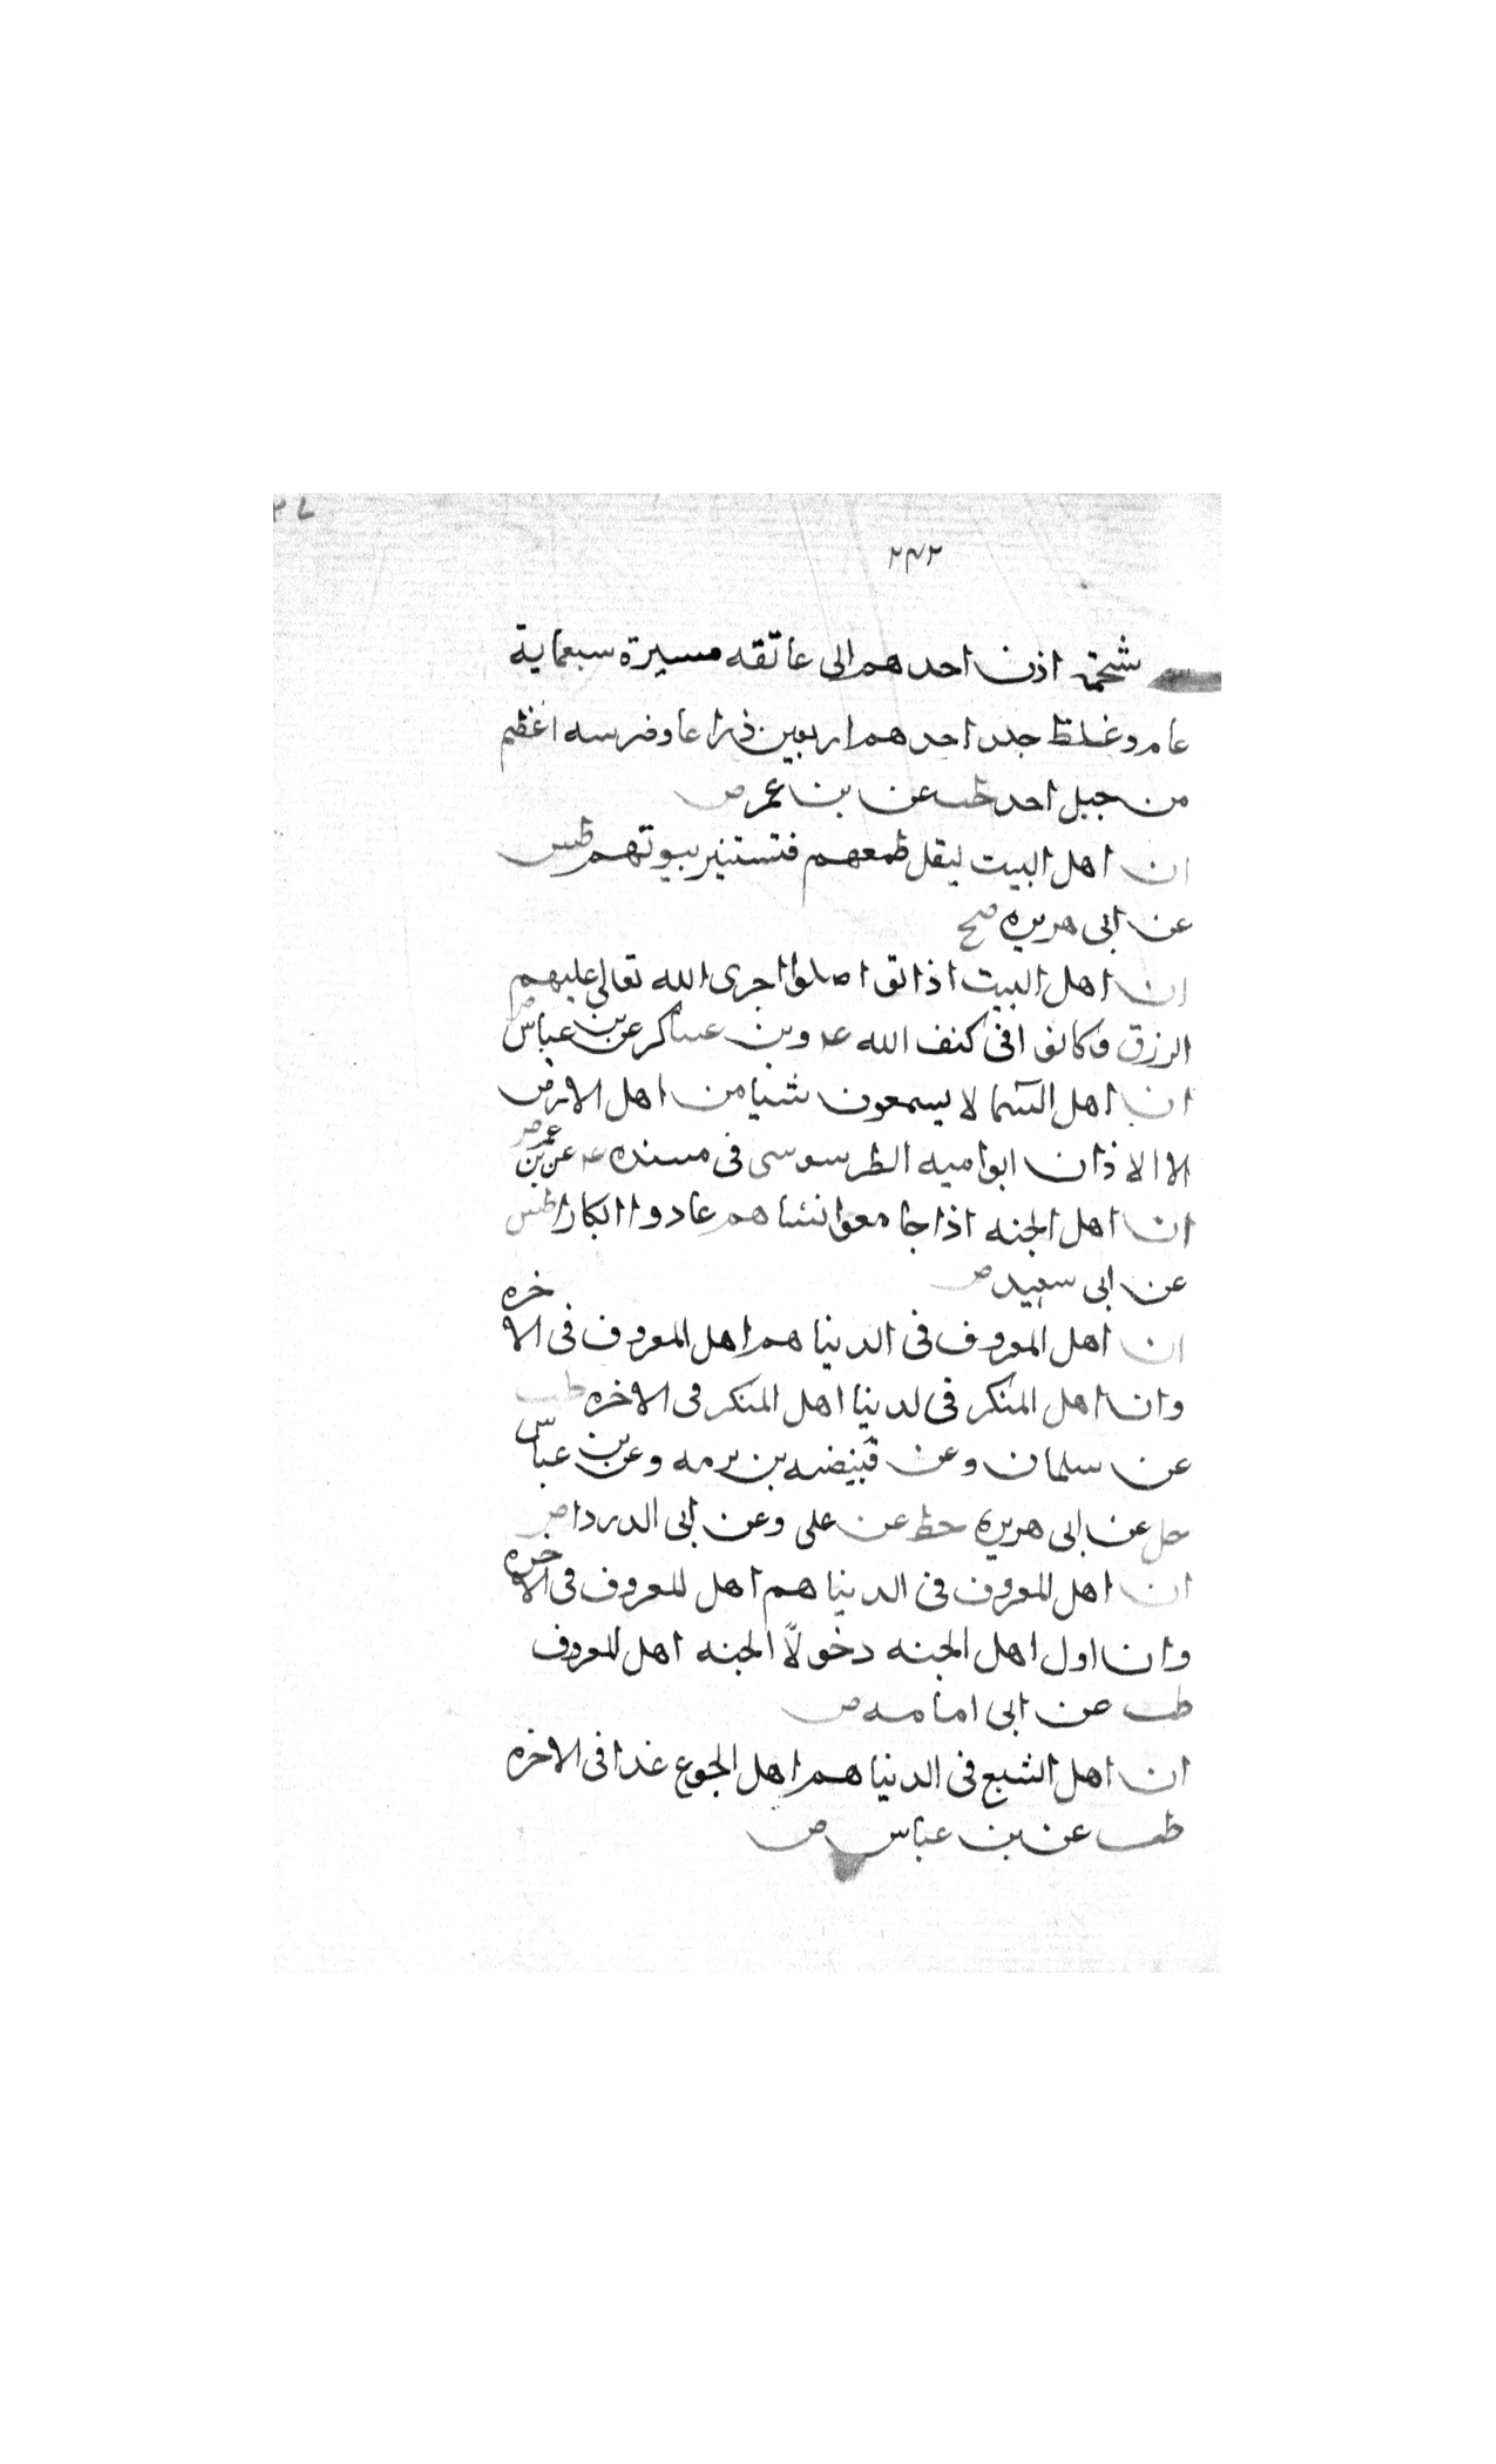 ٢٧٢
شحمة اذن احدهم الى عاتقه مسيرة سبعماية
عام وغلظ جلد احدهم اربعين ذراعا وضرسه اعظم
من جبل احد طب عن بن عمر ض
ان اهل البيت ليقل طعمهم فتستنير بيوتهم طس
عن ابى هريره صح
ان اهل البيت اذا تواصلوا اجرى الله تعالى عليهم
الرزق وكانوا فى كنف الله عد وبن عساكر عن بن عباس ض
ان اهل السما لا يسمعون شيا من اهل الارض
الا الاذان ابو اميه الطرسوسى فى مسنده عد عن بن عمر ض
ان اهل الجنه اذا جامعوا نساهم عادوا ابكارا طس
عن ابى سعيد ض
ان اهل المعروف فى الدنيا هم اهل المعروف فى الاخره
وان اهل المنكر فى لدنيا اهل المنكر فى الاخره طب
عن سلمان وعن قبيضه بن برمه وعن بن عباس
حل عن ابى هريرة خط عن على وعن ابى الدردا ض
ان اهل المعروف فى الدنيا هم اهل المعروف فى الاخره
وان اول اهل الجنه دخولًا الجنه اهل المعروف
طب عن ابى امامه ض
ان اهل الشبع فى الدنيا هم اهل الجوع غدا فى الاخره
طب عن بن عباس ض